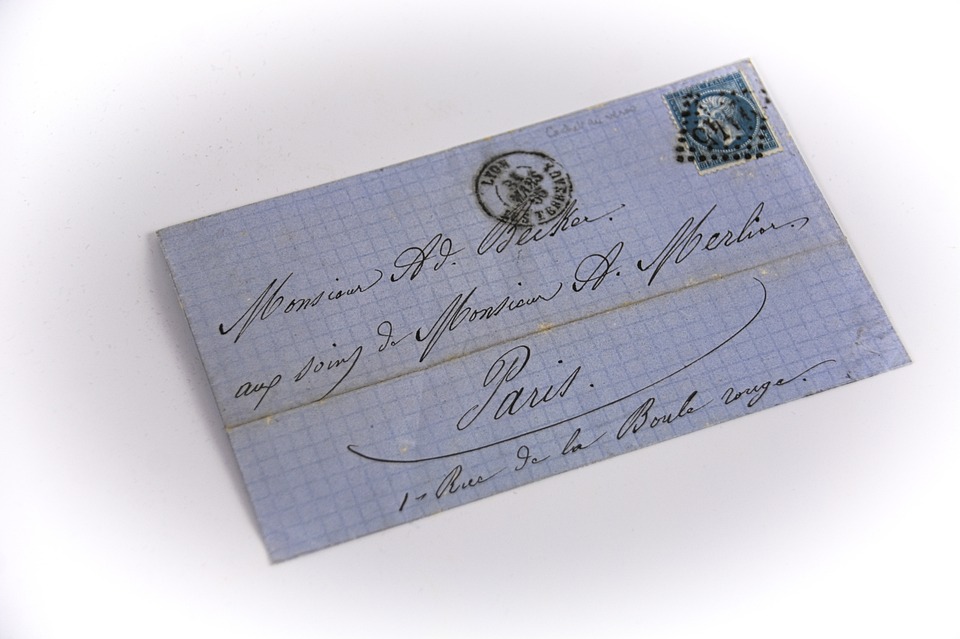 LYON LES TERREAUX
31
MARS
Monsieur Ad. Becker.
aux soins de Monsieur A. Merlior.
Paris.
1- Rue de la Boule rouge.